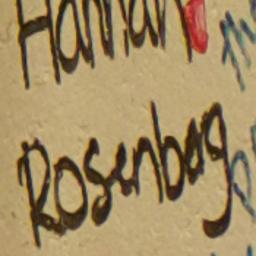 Hannah
Rosenbag